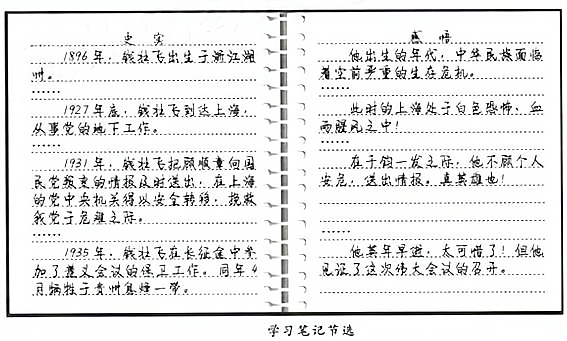 史实
1896年,钱壮飞出生于浙江湖
州。
……
1927年底,钱壮飞到达上海,
从事党的地下工作。
……
1931年,钱壮飞把顾顺章向国
民党叛变的情报及时送出,在上海
的党中央机关得以安全转移,挽救
我党于危难之际。
……
1935年,钱壮飞在长征途中参
加了遵义会议的保卫工作。同年4
月牺牲于贵州息烽一带。
感悟
他出生的年代,中华民族面临
着空前严重的生存危机。
……
此时的上海处于白色恐怖、血
雨腥风之中!
……
在千钧一发之际,他不顾个人
安危,送出情报。真英雄也!
……
他英年早逝,太可惜了!但他
见证了这次伟大会议的召开。
学习笔记节选